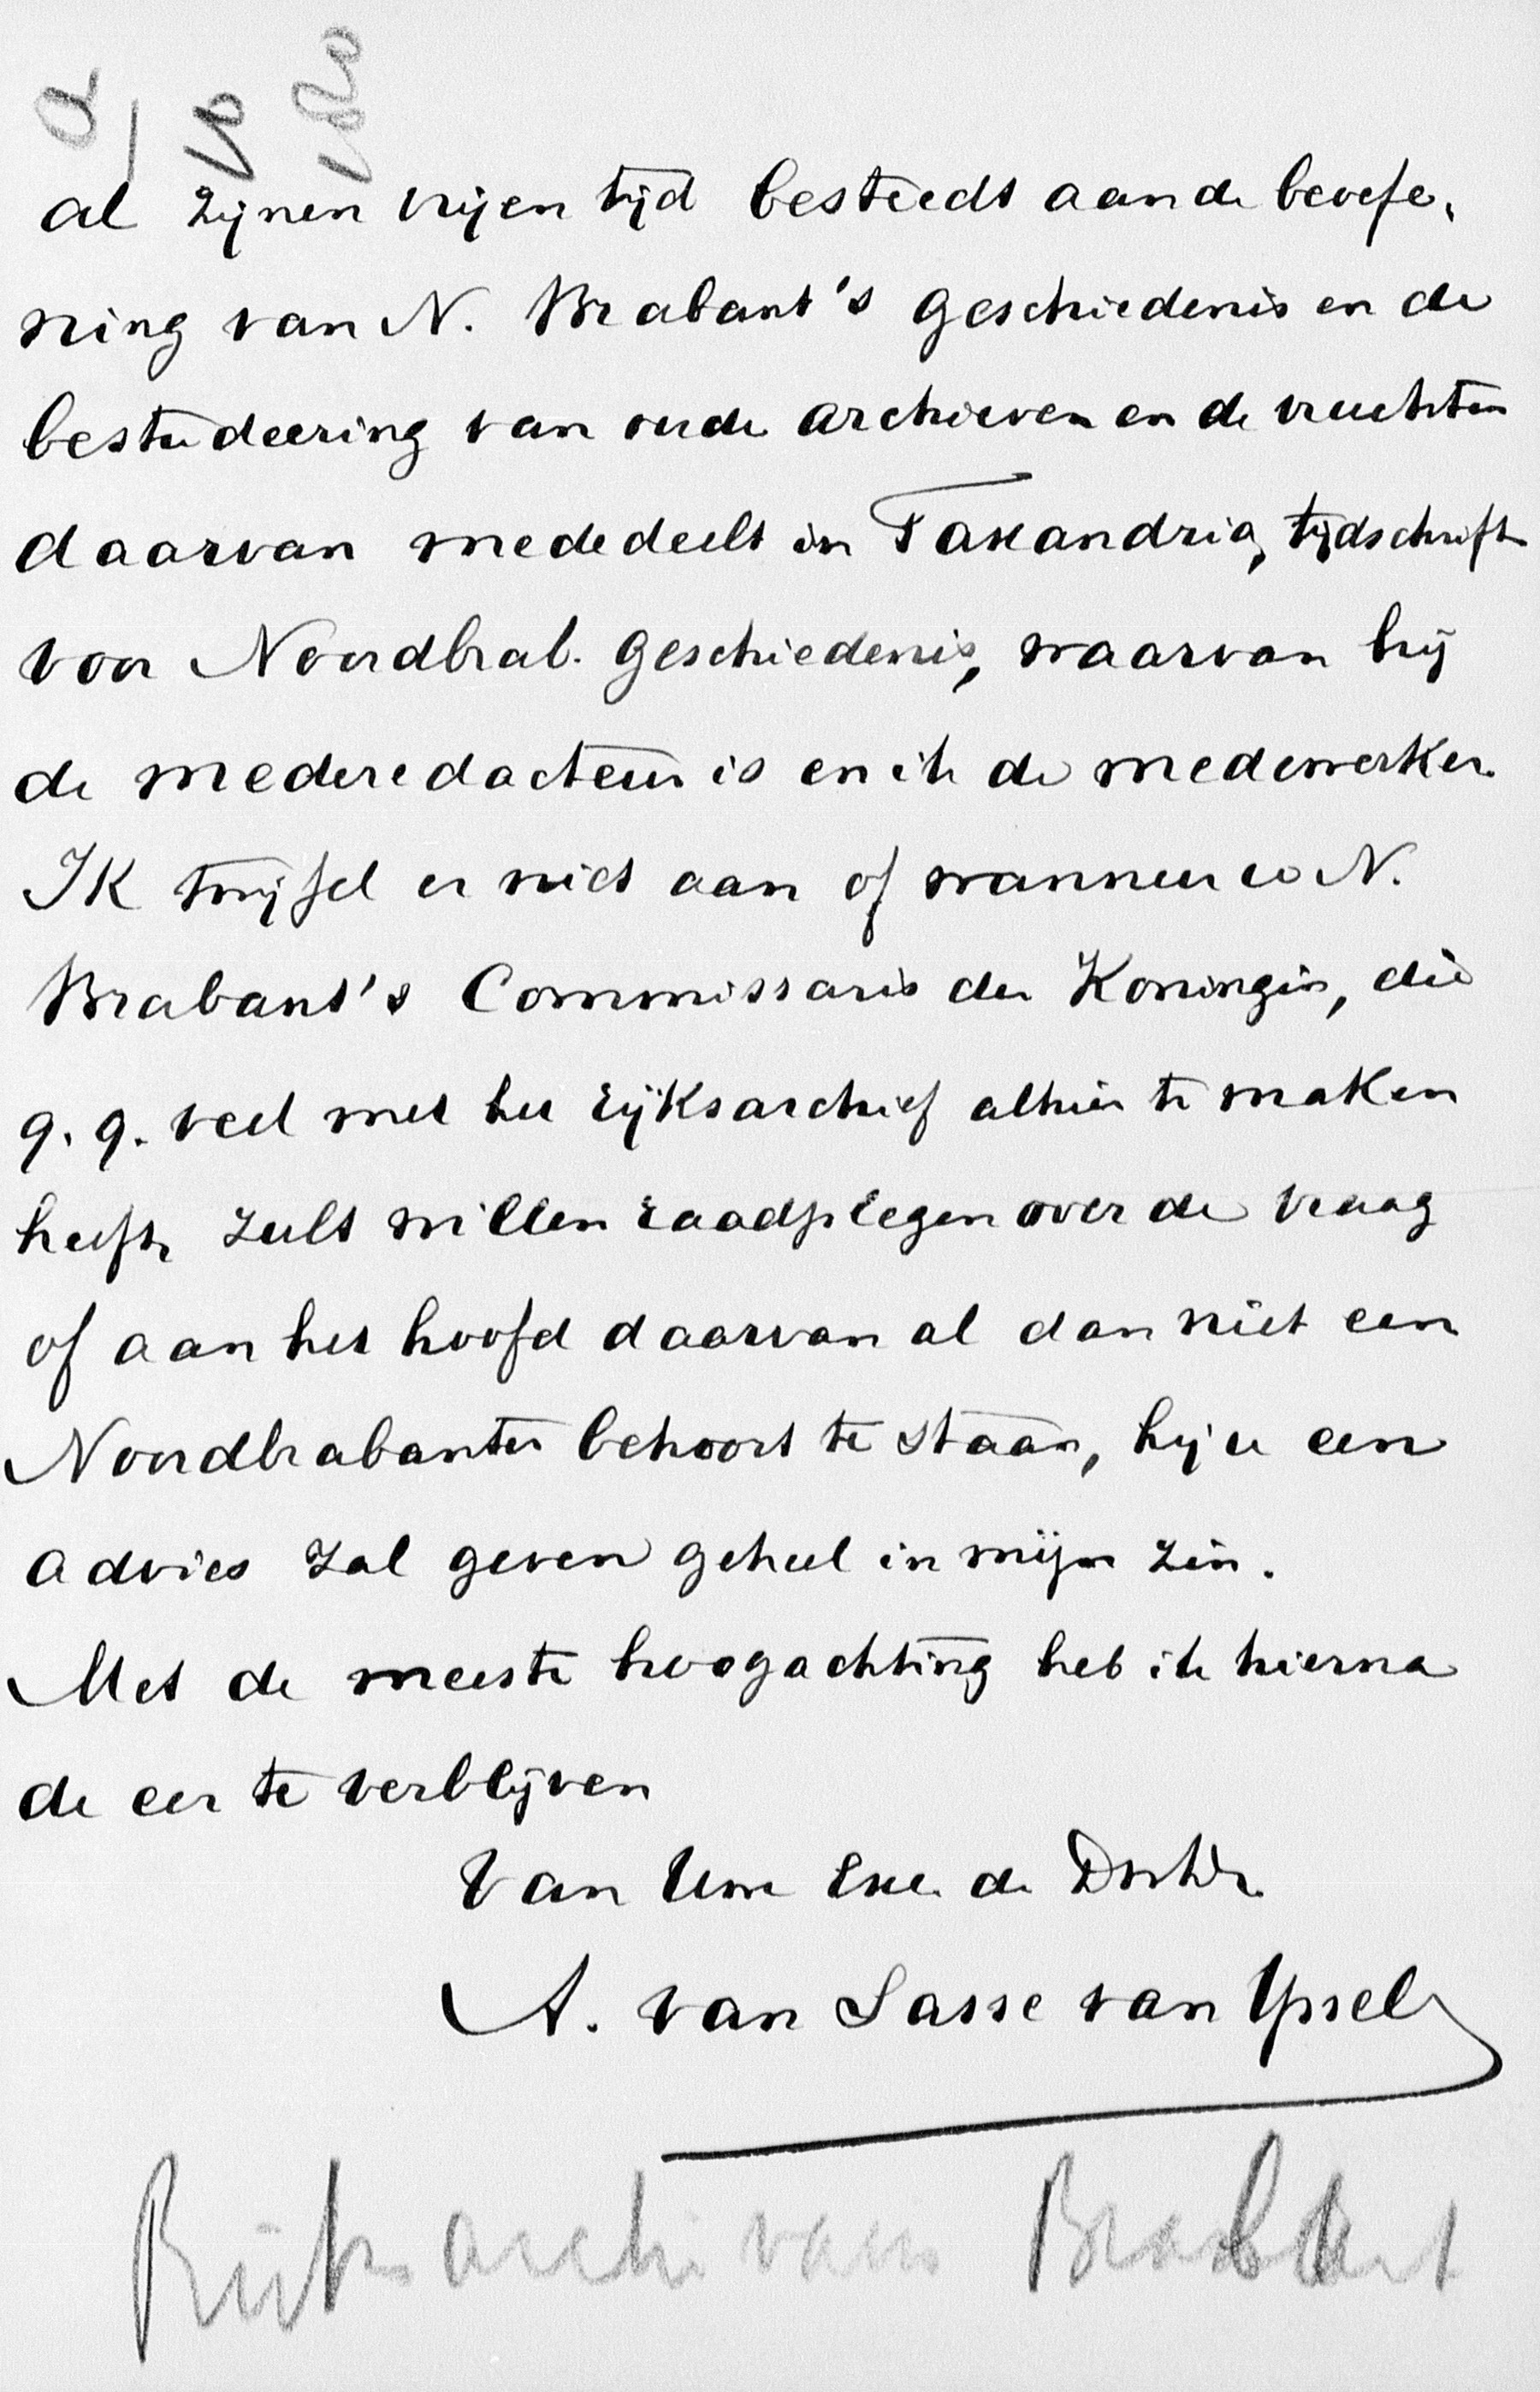 al zijnen vrijen tijd besteedt aan de beoefe-
ning van N. Brabant's geschiedenis en de
bestudeering van oude archieven en de vruchten
daarvan mededeelt in Taxandria, tijdschrift
voor Noordbrab. geschiedenis, waarvan hij
de mederedacteur is en ik de medewerker.
Ik twijfel er niet aan of wanneer U N.
Brabant's Commissaris der Koningin, die
q. q. veel met het rijksarchief alhier te maken
heeft, zult willen raadplegen over de vraag
of aan het hoofd daarvan al dan niet een
Noordbrabanter behoort te staan, hij u een
advies zal geven geheel in mijn zin.
Met de meeste hoogachting heb ik hierna
de eer te verblijven
Van Uwe Exc. de Dw Dr.
A. van Sasse van Yssel
Rijksarchivaris Brabant